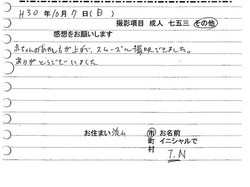 H30年10月7日(日)
撮影項目 成人 七五三 その他
感想をお願いします
赤ちゃんのあやし方が上手で、スムーズに撮影できました。
ありがとうございました
お住まい 流山 市町村 お名前 イニシャルで
T.N